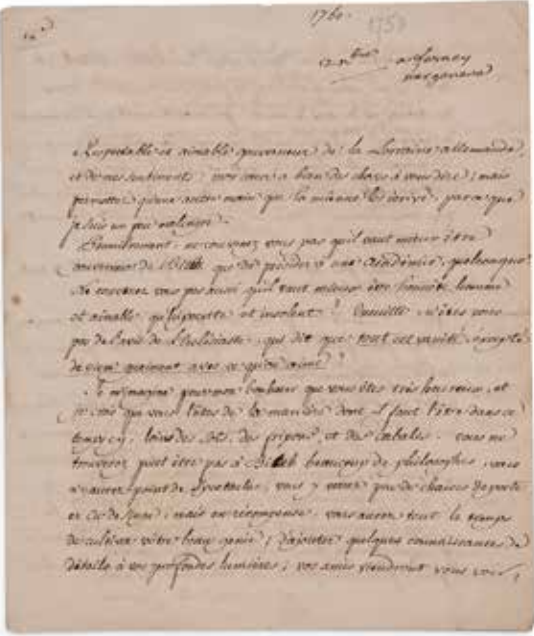 1760. 1758
12 à ferney
par geneve
Respectable et aimable gouverneur de la Lorraine allemande,
et de mes sentiments, mon cœur a bien des choses à vous dire; mais
permettez qu'une autre main que la mienne les écrive, parce que
je suis un peu malingre.
Premierement, ne convenez vous pas qu'il vaut mieux être
gouverneur de Bitch que de présider à une académie quelconque?
Ne convenez vous pas aussi qu'il vaut mieux être honnête homme
et aimable qu'hypocrite et insolent? Ensuitte n'êtes vous
pas de l'avis de l'Ecclésiaste, qui dit que tout est vanité, excepté
de vivre gaiment avec ce qu'on aime?
Je m'imagine pour mon bonheur que vous êtes très heureux, et
je crois que vous l'êtes de la manière dont il faut l'être dans ce
temps cy, loin des sots, des fripons, et des cabales. vous ne
trouverez peut être pas à Bitch beaucoup de philosophes, vous
n'aurez point de spectacles, vous y verrez peu de chaises de poste
en cu de singe, mais en récompense, vous aurez tout le temps
de cultiver vôtre beau génie, d'ajouter quelques connaissances de
détails à vos profondes lumières; vos amis viendront vous voir,